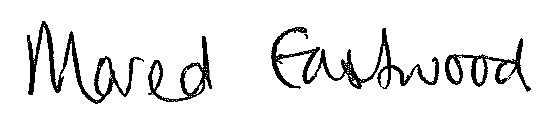 Mared Eastwood